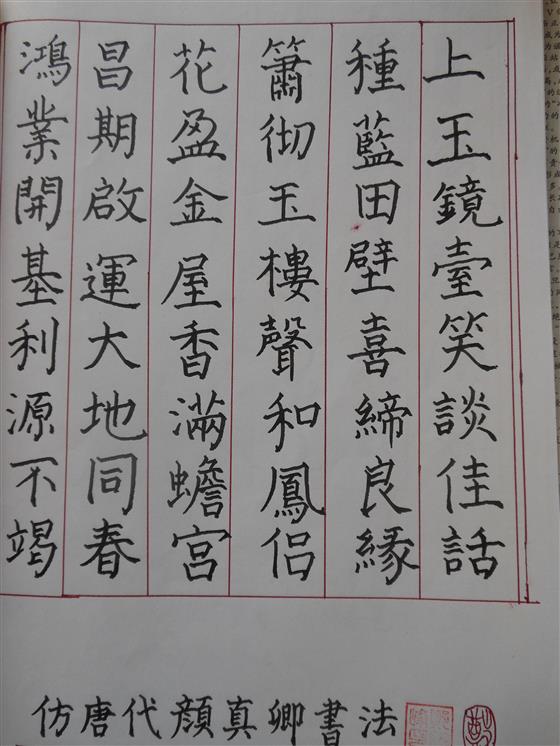 上玉鏡臺笑談佳話
種藍田壁喜締良緣
簫彻玉樓聲和鳳侶
花盈金屋香滿蟾宮
昌期啟運大地同春
鴻業開基利源不竭
仿唐代顔真卿書法